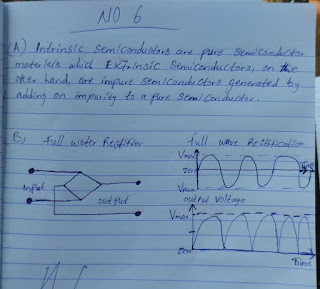 NO 6
(A) Intrinsic semiconductors are pure semiconductor
materials which Extrinsic semiconductors, on the
other hand, are impure semiconductors generated by
adding an impurity to a pure semiconductor.
B) full water Rectifier
full wave Rectification
Vmax
zero
Vmax
input
output
output Voltage
Vmax
zero
Time